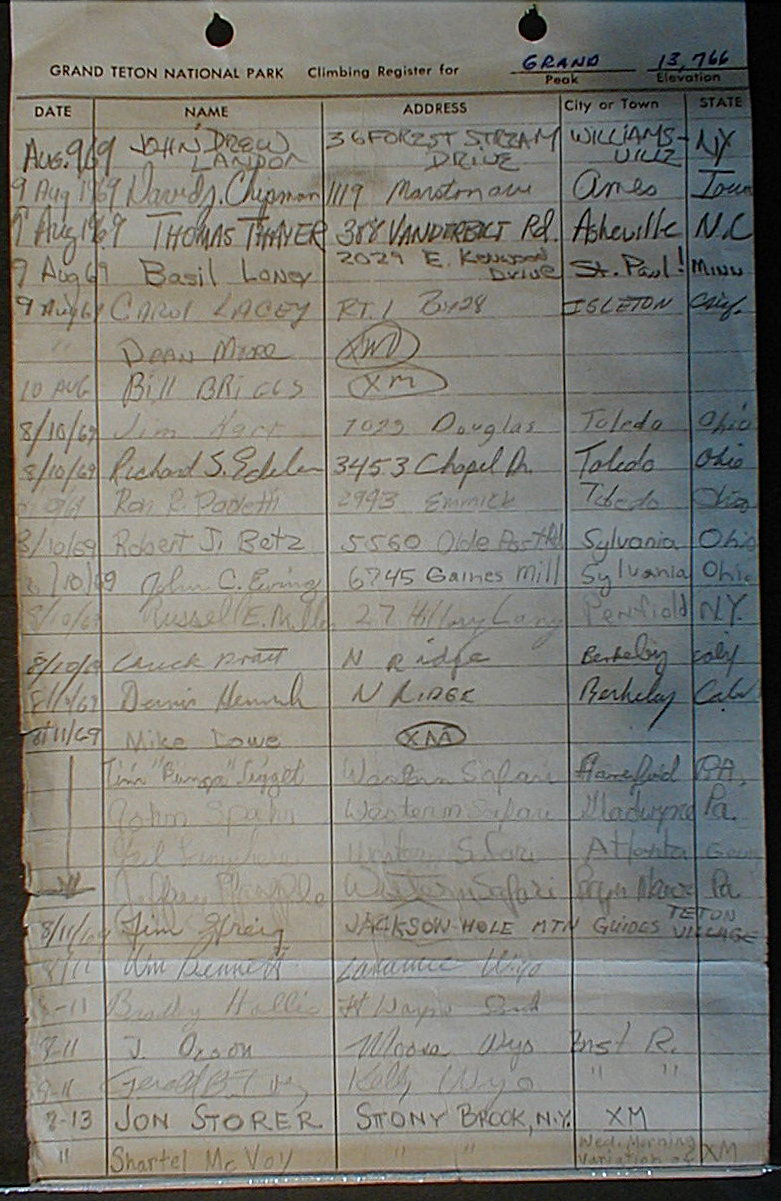 GRAND TETON NATIONAL PARK Climbing Register for GRAND 13,766
Peak Elevation
DATE NAME ADDRESS City or Town STATE
Aug. 9/69 JOHN DREW LANDON 36 FOREST STREAM DRIVE WILLIAMS-VILLE NY
9 Aug 1969 David J. Chipman 1119 Marston ave Ames Iowa
9 Aug 1969 THOMAS THAYER 388 VANDERBILT Rd. Asheville N.C
9 Aug 69 Basil Loney 2029 E. KENWOOD DRIVE St. Paul! MINN
9 Aug 69 CAROL LACEY RT. 1 Bx 28 ISLETON Calif.
" DEAN MOORE XM
10 AUG Bill BRIGGS XM
8/10/69 Jim Karr 7023 Douglas Toledo Ohio
8/10/69 Richard S. Edelen 3453 Chapel Dr. Toledo Ohio
Ron R. Paoletti 2993 Emmick Toledo Ohio
8/10/69 Robert J. Betz 5560 Olde Post Rd Sylvania Ohio
8/10/69 John C. Ewing 6745 Gaines Mill Sylvania Ohio
8/10/69 Russell E. Miller 27 Hillary Lane Penfield N.Y.
8/10/69 Chuck Pratt N Ridge Berkeley calif
Dennis N RIDGE Berkeley Calif
8/11/69 Mike Lowe XM
Tim Western Safari PA.
John Spahn Western Safari Gladwyne Pa.
Western Safari Atlanta
Jeffrey Western Safari Bryn Mawr Pa
8/11/69 Jim Greig JACKSON HOLE MTN GUIDES TETON VILLAGE
8/11 Wm Bennett Laramie Wyo
8-11 Bradley Hollis Ft Wayne Ind
8-11 J. Orson Moose Wyo Inst R.
8-11 Gerald B. Kelly Wyo " "
8-13 JON STORER STONY BROOK, N.Y. XM
" Shartel McVoy " " Wed. Morning Variation of XM